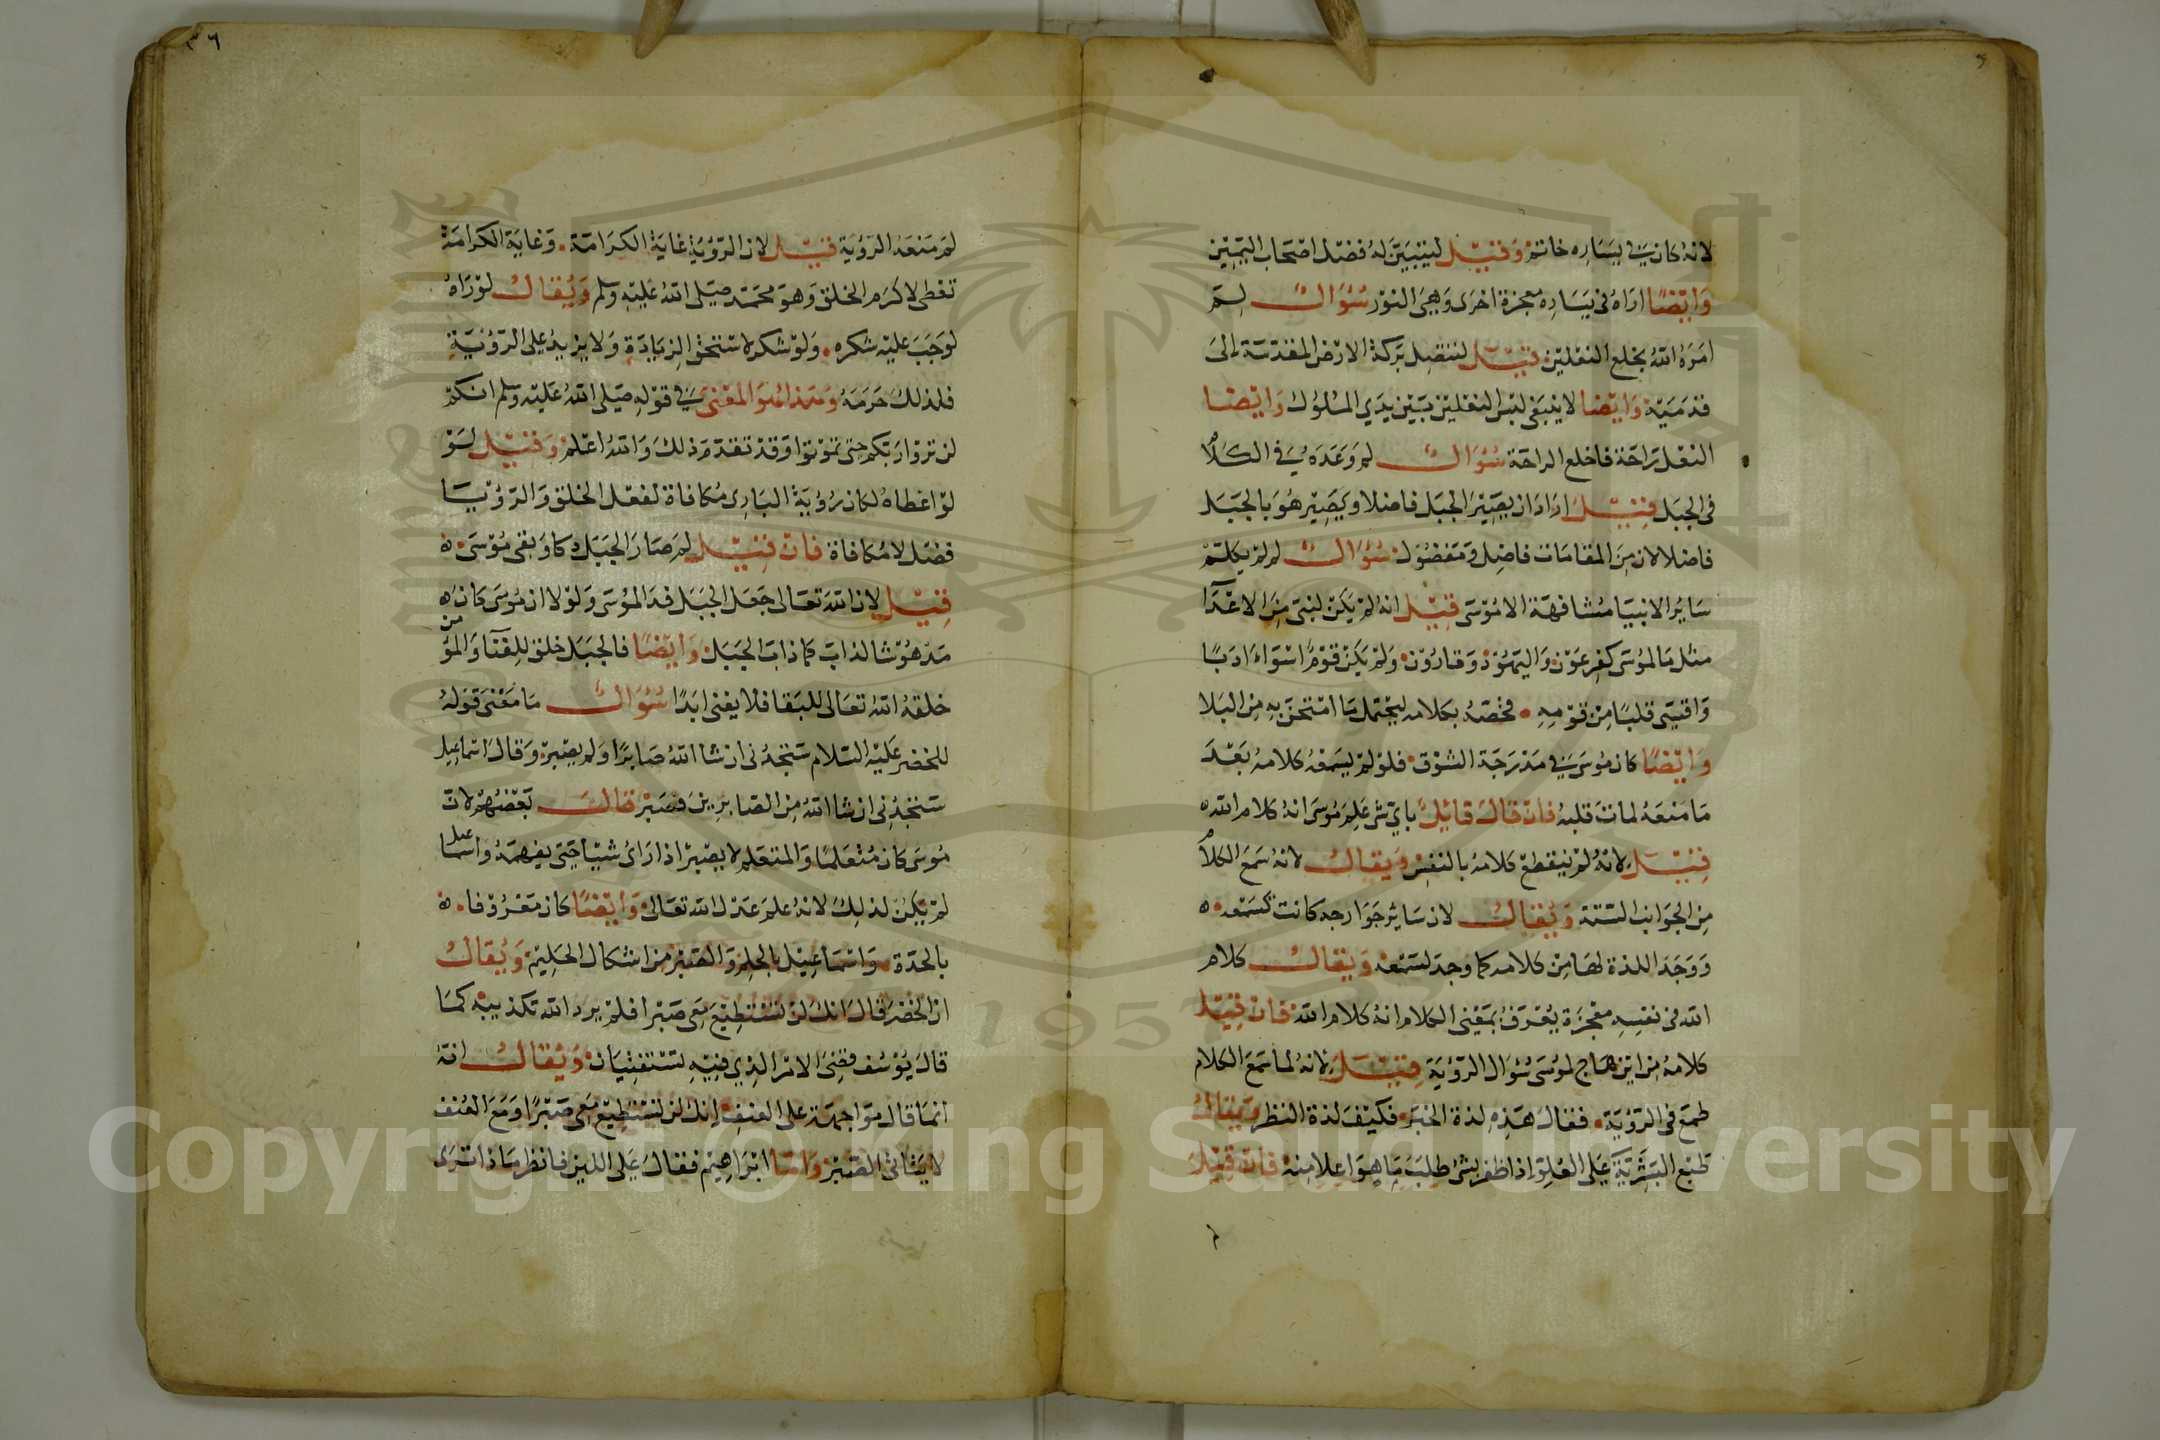 لانه كان في يساره خاتم وقيل ليتبين له فضل اصحاب اليمين
وايضا اراه في يساره معجزة اخرى وهي النور سؤال لم
امره الله بخلع النعلين قيل لتتصل بركة الارض المقدسة الى
قدميه وايضا لا ينبغي لبس النعلين بين يدي الملوك وايضا
النعل راحة فاخلع الراحة سؤال لم وعده في الكلام
في الجبل قيل اراد ان يصير الجبل فاضلا ويصير هو بالجبل
فاضلا لان من المقامات فاضل ومفضول سؤال لم لم يكلم
ساير الانبيا مشافهة الا موسى قيل انه لم يكن لنبي من الاعدا
مثل ما لموسى كفرعون واليهود وقارون ولم يكن قوم اسواء ادبا
واقسى قلبا من قومه فخصه بكلامه ليحتمل ما امتحن به من البلا
وايضا كان موسى في مدرجة الشوق فلو لم يسمعه كلامه بعد
ما منعه لمات قلبه فان قال قائل باي شي علم موسى انه كلام الله
قيل لانه لم ينقطع كلامه بالنفس ويقال لانه سمع الكلام
من الجوانب الستة ويقال لان سائر جوارحه كانت كسمعه
ووجد اللذة لها من كلامه كما وجد لسمعه ويقال كلام
الله في نفسه معجزة يعرف بمعنى الكلام انه كلام الله فان قيل
كلامه من اين هاج لموسى سؤال الرؤية قيل لانه لما سمع الكلام
طمع في الرؤية فقال هذه لذة الخبر فكيف لذة النظر ويقال
طبع البشرية على العلو اذا ظفر بشئ طلب ما هو اعلا منه فان قيل
٣٦
لم منعه الرؤية قيل لان الرؤية غاية الكرامة وغاية الكرامة
تعطى لاكرم الخلق وهو محمد صلى الله عليه وسلم ويقال لو راه
لوجب عليه شكره ولو شكر لاستحق الزيادة ولا يزيد على الرؤية
فلذلك حرمه وهذا هو المعنى في قوله صلى الله عليه وسلم انكم
لن تروا ربكم حتى تموتوا وقد تقدم ذلك والله اعلم وقيل لو
لو اعطاه لكان رؤية الباري مكافاة لفعل الخلق والرؤيا
فضل لا مكافاة فان قيل لم صار الجبل دكا وبقى موسى
قيل لان الله تعالى جعل الجبل فدا لموسى ولولا ان موسى كان
مدهوشا لذاب كما ذاب الجبل وايضا فالجبل خلق للفنا والمؤمن
خلقه الله تعالى للبقا فلا يفنى ابدا سؤال ما معنى قوله
للخضر عليه السلام ستجدني ان شا الله صابرا ولم يصبر وقال اسماعيل
ستجدني ان شا الله من الصابرين فصبر قال بعضهم لان
موسى كان متعلما والمتعلم لا يصبر اذا راى شيا حتى يفهمه واسماعيل
لم يكن لذلك لانه علم عدل الله تعالى وايضا كان معروفا
بالحدة واسماعيل بالحلم والصبر من اشكال الحليم ويقال
ان الخضر قال انك لن تستطيع معى صبرا فلم يرد الله تكذيبه كما
قال يوسف قضى الامر الذي فيه تستفتيان ويقال انه
انما قال مواجهة على العنف انك لن تستطيع معى صبرا ومع العنف
لا يتاتى الصبر واما ابراهيم فقال على اللين فانظر ماذا ترى